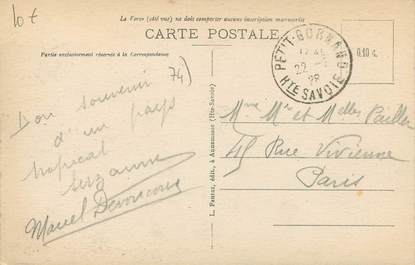 10€
La Verso (côté vue) ne doit comporter aucune inscription manuscrite
CARTE POSTALE
Partie exclusivement réservée à la Correspondance
0.10 c.
PETIT-BORNAND
22
28
HTE SAVOIE
74)
Bon souvenir
d'un pays
tropical
Suzanne
Marcel
L. Pasteur, édit., à Annemasse (Hte-Savoie)
Mme Mr et Melles
45 Rue Vivienne
Paris